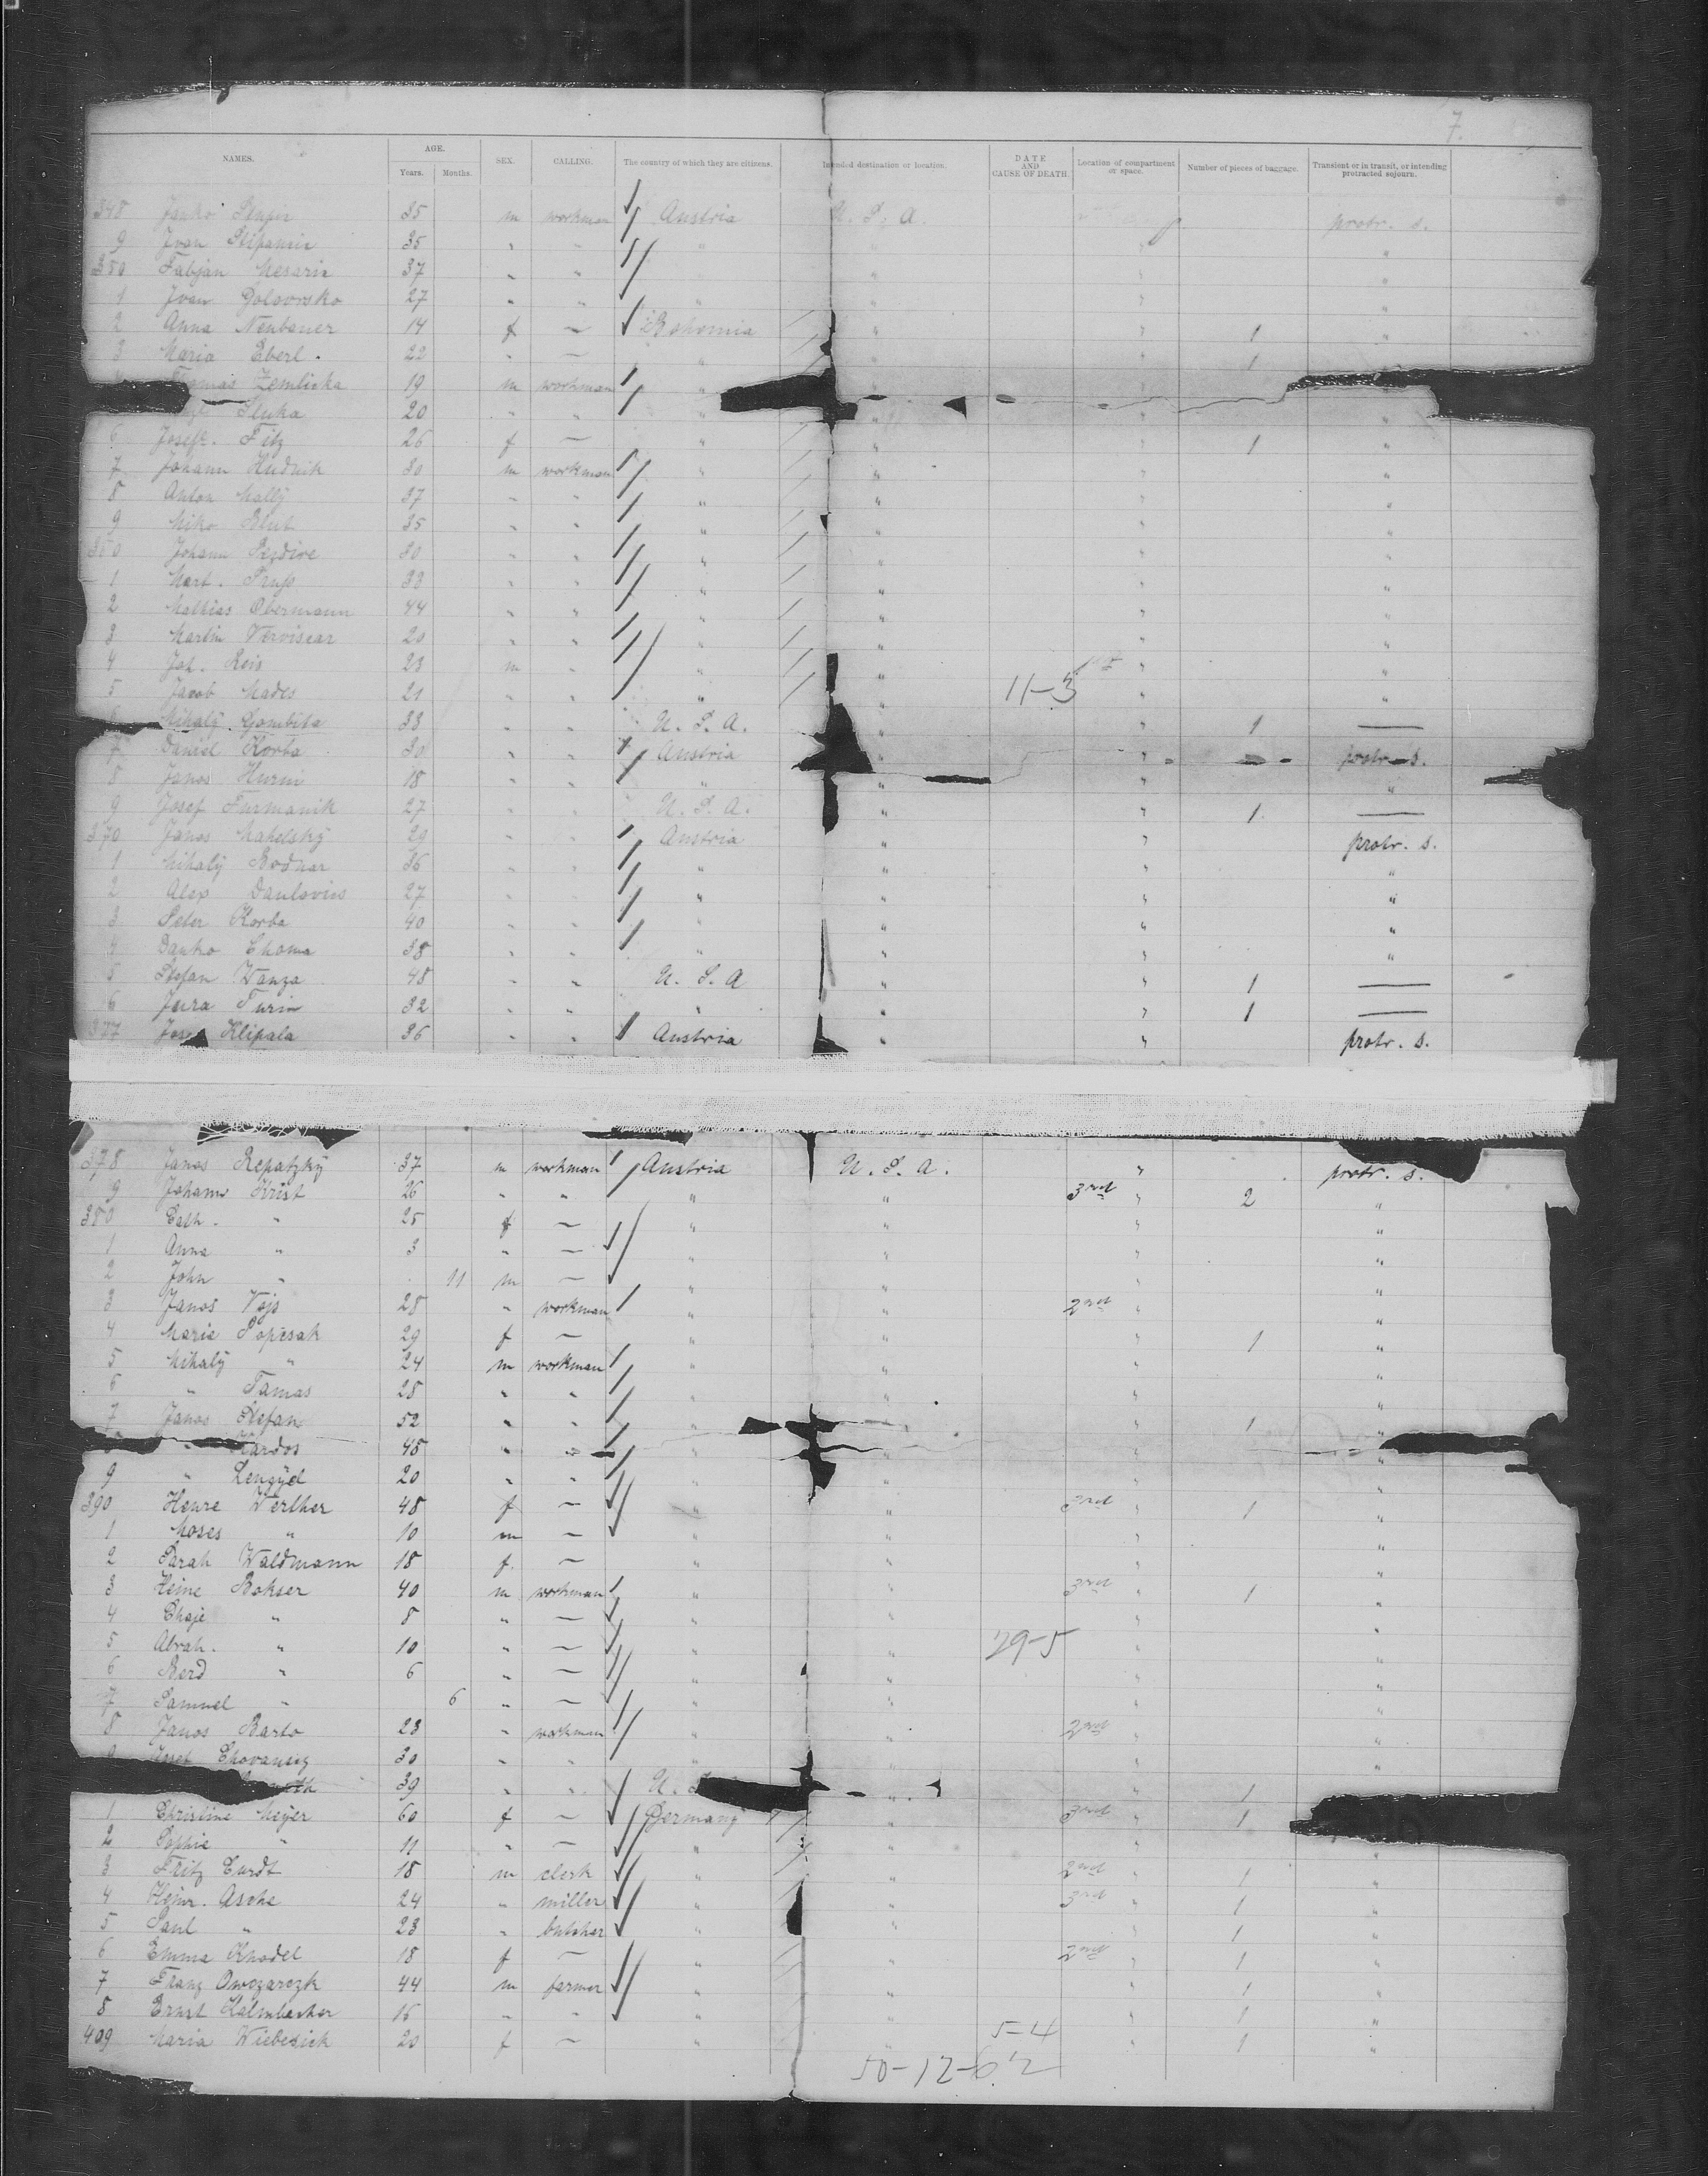 7.
NAMES. AGE. Years. Months. SEX. CALLING. The country of which they are citizens. Intended destination or location. DATE AND CAUSE OF DEATH. Location of compartment or space. Number of pieces of baggage. Transient or in transit, or intending protracted sojourn.
348 Janko 35 m workman Austria U. S. A. protr. s.
9 Ivan Stipancic 35 " " " " " "
350 Fabjan Mesaric 37 " " " " " "
1 Ivan 27 " " " " " "
2 Anna Neubauer 14 f — Bohemia " " 1 "
3 Maria Eberl. 22 " — " " " 1 "
Thomas Zemlicka 19 m workman " " " "
Sluka 20 " " " " " "
6 Josefa Fitz 26 f — " " " 1 "
7 Johann Hudnik 30 m workman " " " "
8 Anton Mally 37 " " " " " "
9 Miko 35 " " " " " "
360 Johann 30 " " " " " "
1 Mart. 33 " " " " " "
2 Mathias Obermann 44 " " " " " "
3 Martin Verviscar 20 " " " " " "
4 Joh. Reis 23 m " " " " "
5 Jacob Mades 21 " " " " 11-3 " "
Mihaly Gombita 33 " " U. S. A. " " 1 —
7 Daniel Korba 30 " " Austria " " protr. s.
8 Janos Hurni 18 " " " " " "
9 Josef Furmanik 27 " " U. S. A. " " 1 —
370 Janos Mahelsky 29 " " Austria " protr. s.
1 Mihaly Bodnar 36 " " " " " "
2 Alex Daulovics 27 " " " " " "
3 Peter Korba 40 " " " " " "
4 Danko Choma 38 " " " " " "
5 Stefan Wanza 48 " " U. S. A " " 1 —
6 Jura Turin 32 " " " " " 1 —
377 Josef Klipala 36 " " Austria " " protr. s.
378 Janos Repatzky 37 m workman Austria U. S. A. " protr. s.
9 Johann Krist 26 " " " " 3rd " 2 "
380 Cath. " 25 f — " " " "
1 Anna " 3 " — " " " "
2 John " 11 m — " " " "
3 Janos Vojs 28 " workman " " 2nd " "
4 Marie Popcsak 29 f — " " " 1 "
5 Mihaly " 24 m workman " " " "
6 " Tamas 28 " " " " " "
7 Janos Stefan 52 " " " " " 1 "
" Kardos 45 " " " " " "
9 " Lengyel 20 " " " " " "
390 Henre Werther 48 f — " " 3rd " 1 "
1 Moses " 10 m — " " " "
2 Sarah Waldmann 18 f. — " " " "
3 Heine Bokser 40 m workman " " 3rd " 1 "
4 Chaje " 8 " — " " " "
5 Abrah. " 10 " — " " 29-5 " "
6 Berd " 6 " — " " " "
7 Samuel " 6 " — " " " "
8 Janos Barto 23 " workman " " 2nd " "
Josef Chovanecz 30 " " " " " "
39 " " U. " " 1
1 Christine Meyer 60 f — Germany " 3rd " 1
2 Sophie " 11 " — " " " "
3 Fritz Curdt 18 m clerk " " 2nd " 1 "
4 Heinr. Asche 24 " miller " " 3rd " 1 "
5 Paul " 23 " butcher " " " 1 "
6 Emma Knodel 18 f — " " 2nd " 1 "
7 Franz Owczarczk 44 m farmer " " " 1 "
8 Ernst Kalmbacher 16 " " " " " 1 "
409 Maria Wiebesick 20 f — " " 5-4 " 1 "
50-12-62